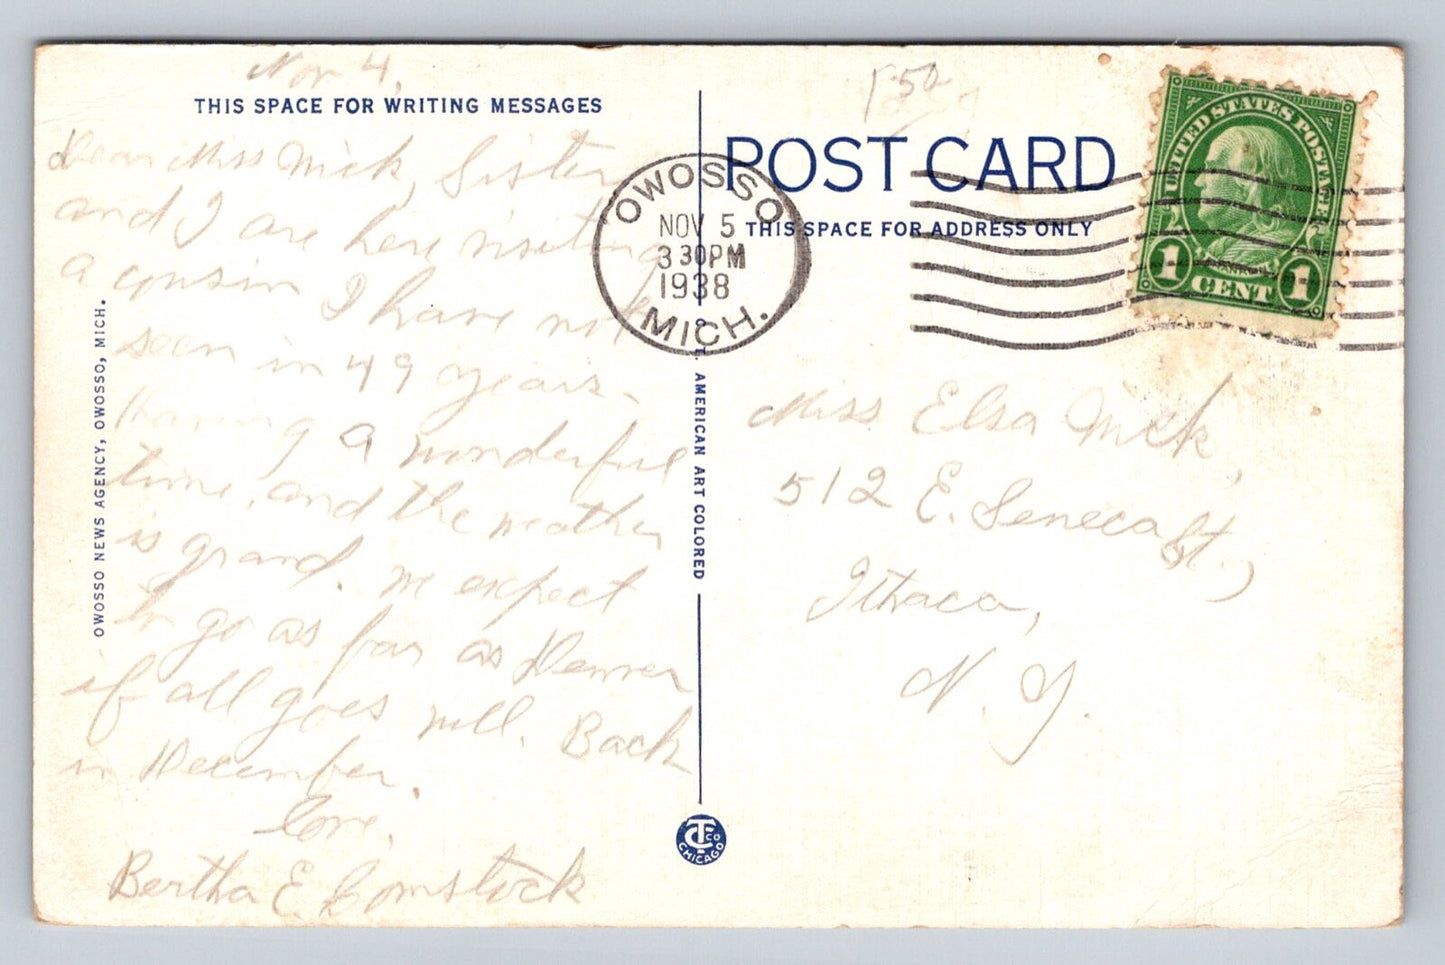 Nov 4,
THIS SPACE FOR WRITING MESSAGES
Dear Miss Mick, Sister
and I are here visiting
a cousin I have not
seen in 49 years.
Having a wonderful
time, and the weather
is grand. We expect
to go as far as Denver
if all goes well. Back
in December.
Love,
Bertha E. Comstock
OWOSSO NEWS AGENCY, OWOSSO, MICH.
C. T. AMERICAN ART COLORED
CTCO
CHICAGO
1.50
POST CARD
THIS SPACE FOR ADDRESS ONLY
OWOSSO
NOV 5
3 30PM
1938
MICH.
UNITED STATES POSTAGE
FRANKLIN
1 CENT 1
Miss Elsa Mick,
512 E. Seneca St.,
Ithaca,
N. Y.